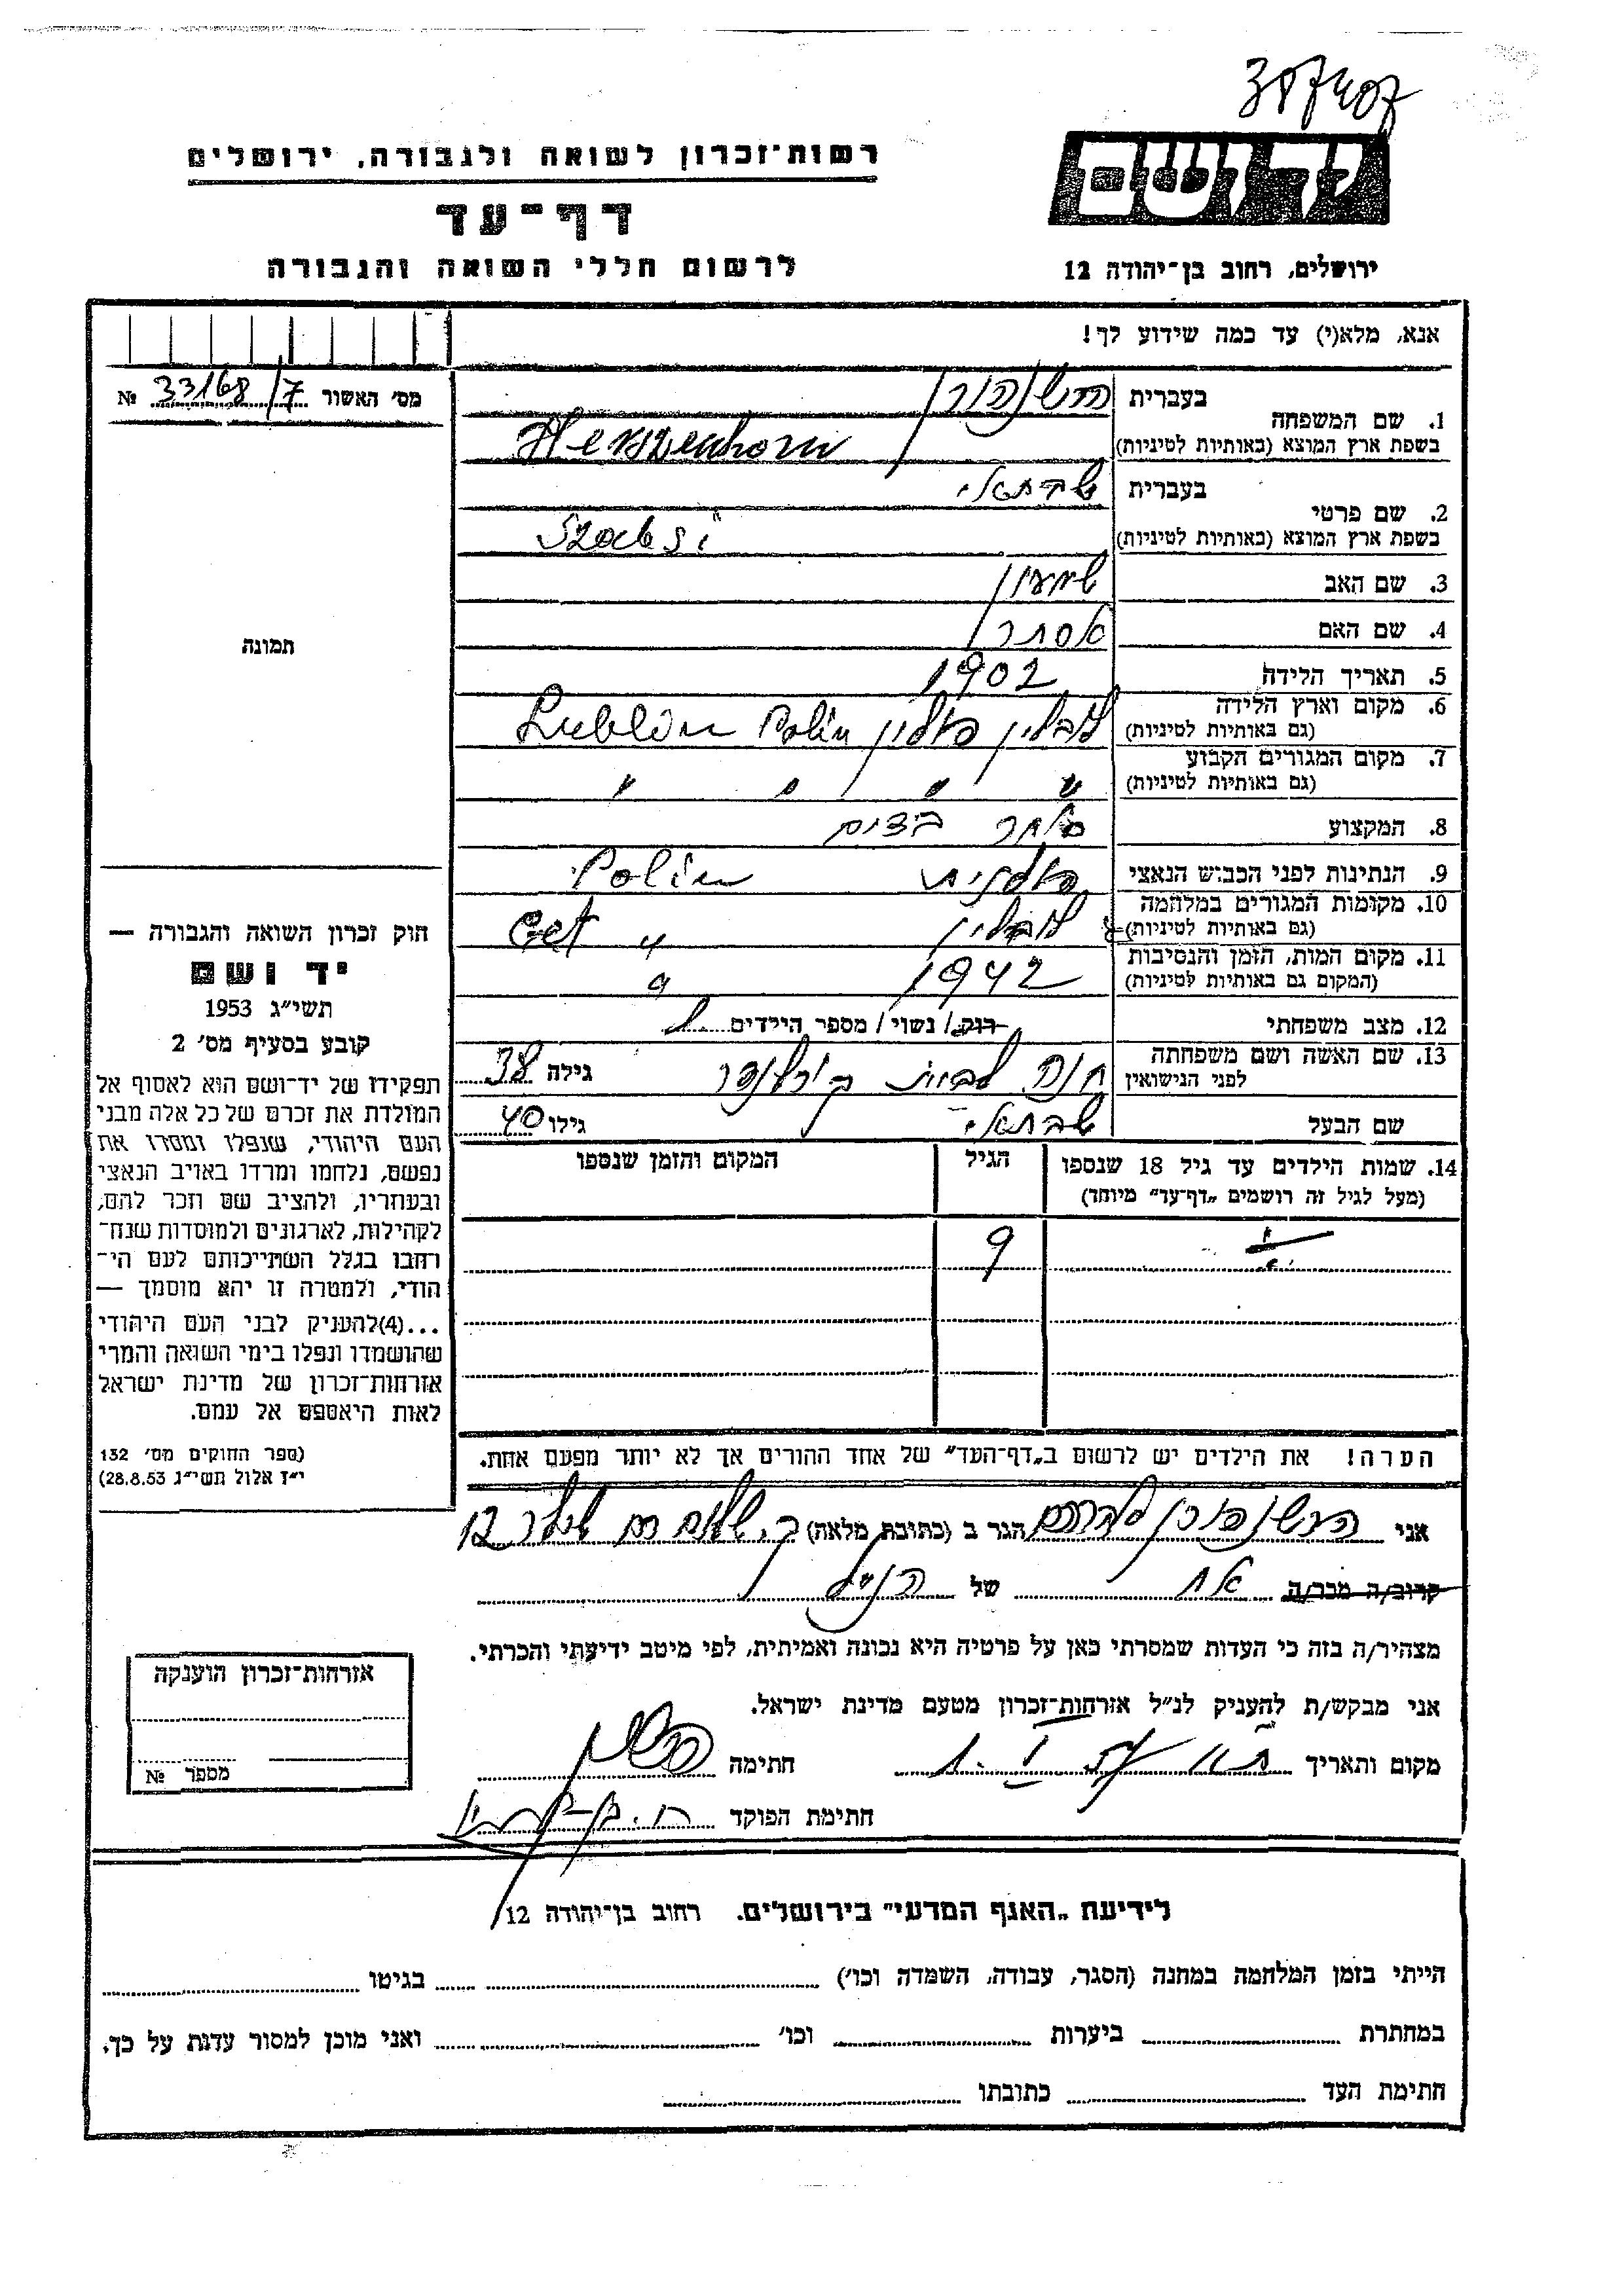 307407
רשות־זכרון לשואה ולגבורה. ירושלים
יד ושם
דף־עד
לרשום חללי השואה והגבורה
ירושלים, רחוב בן־יהודה 12
אנא, מלא(י) עד כמה שידוע לך!
מס׳ האשור 33168/7 №
1. שם המשפחה
בעברית
בשפת ארץ המוצא (באותיות לטיניות)
2. שם פרטי
בעברית שבתאי
בשפת ארץ המוצא (באותיות לטיניות)
3. שם האב שמעון
4. שם האם אסתר
תמונה
5. תאריך הלידה 1902
6. מקום וארץ הלידה
(גם באותיות לטיניות) לובלין פולין Lublin Polin
7. מקום המגורים הקבוע
(גם באותיות לטיניות) " " " "
8. המקצוע סוחר ביצים
9. הנתינות לפני הכבוש הנאצי פולנית Polin
10. מקומות המגורים במלחמה
(גם באותיות לטיניות) לובלין " Get
11. מקום המות, הזמן והנסיבות
(המקום גם באותיות לטיניות) 1942
12. מצב משפחתי רווק / נשוי / מספר הילדים 1
13. שם האשה ושם משפחתה
לפני הנישואין חנה לבית גילה 38
שם הבעל שבתאי גילו 40
14. שמות הילדים עד גיל 18 שנספו
(מעל לגיל זה רושמים „דף־עד״ מיוחד)
הגיל
המקום והזמן שנספו
9
הערה! את הילדים יש לרשום ב„דף־העד״ של אחד ההורים אך לא יותר מפעם אחת.
חוק זכרון השואה והגבורה —
יד ושם
תשי״ג 1953
קובע בסעיף מס׳ 2
תפקידו של יד־ושם הוא לאסוף אל
המולדת את זכרם של כל אלה מבני
העם היהודי, שנפלו ומסרו את
נפשם, נלחמו ומרדו באויב הנאצי
ובעוזריו, ולהציב שם וזכר להם,
לקהילות, לארגונים ולמוסדות שנח־
רחבו בגלל השתייכותם לעם הי־
הודי, ולמטרה זו יהא מוסמך —
...(4)להעניק לבני העם היהודי
שהושמדו ונפלו בימי השואה והמרי
אזרחות־זכרון של מדינת ישראל
לאות היאספם אל עמם.
(ספר החוקים מס׳ 132
י״ז אלול תשי״ג 28.8.53)
אני הגר ב (כתובת מלאה) 12
קרוב/ה מכר/ה אח של הנ״ל
מצהיר/ה בזה כי העדות שמסרתי כאן על פרטיה היא נכונה ואמיתית, לפי מיטב ידיעתי והכרתי.
אני מבקש/ת להעניק לנ״ל אזרחות־זכרון מטעם מדינת ישראל.
מקום ותאריך חתימה
חתימת הפוקד
אזרחות־זכרון הוענקה
מספר №
לידיעת „האגף המדעי״ בירושלים. רחוב בן־יהודה 12
הייתי בזמן המלחמה במחנה (הסגר, עבודה, השמדה וכו׳) בגיטו
במחתרת ביערות וכו׳ ואני מוכן למסור עדות על כך.
חתימת העד כתובתו